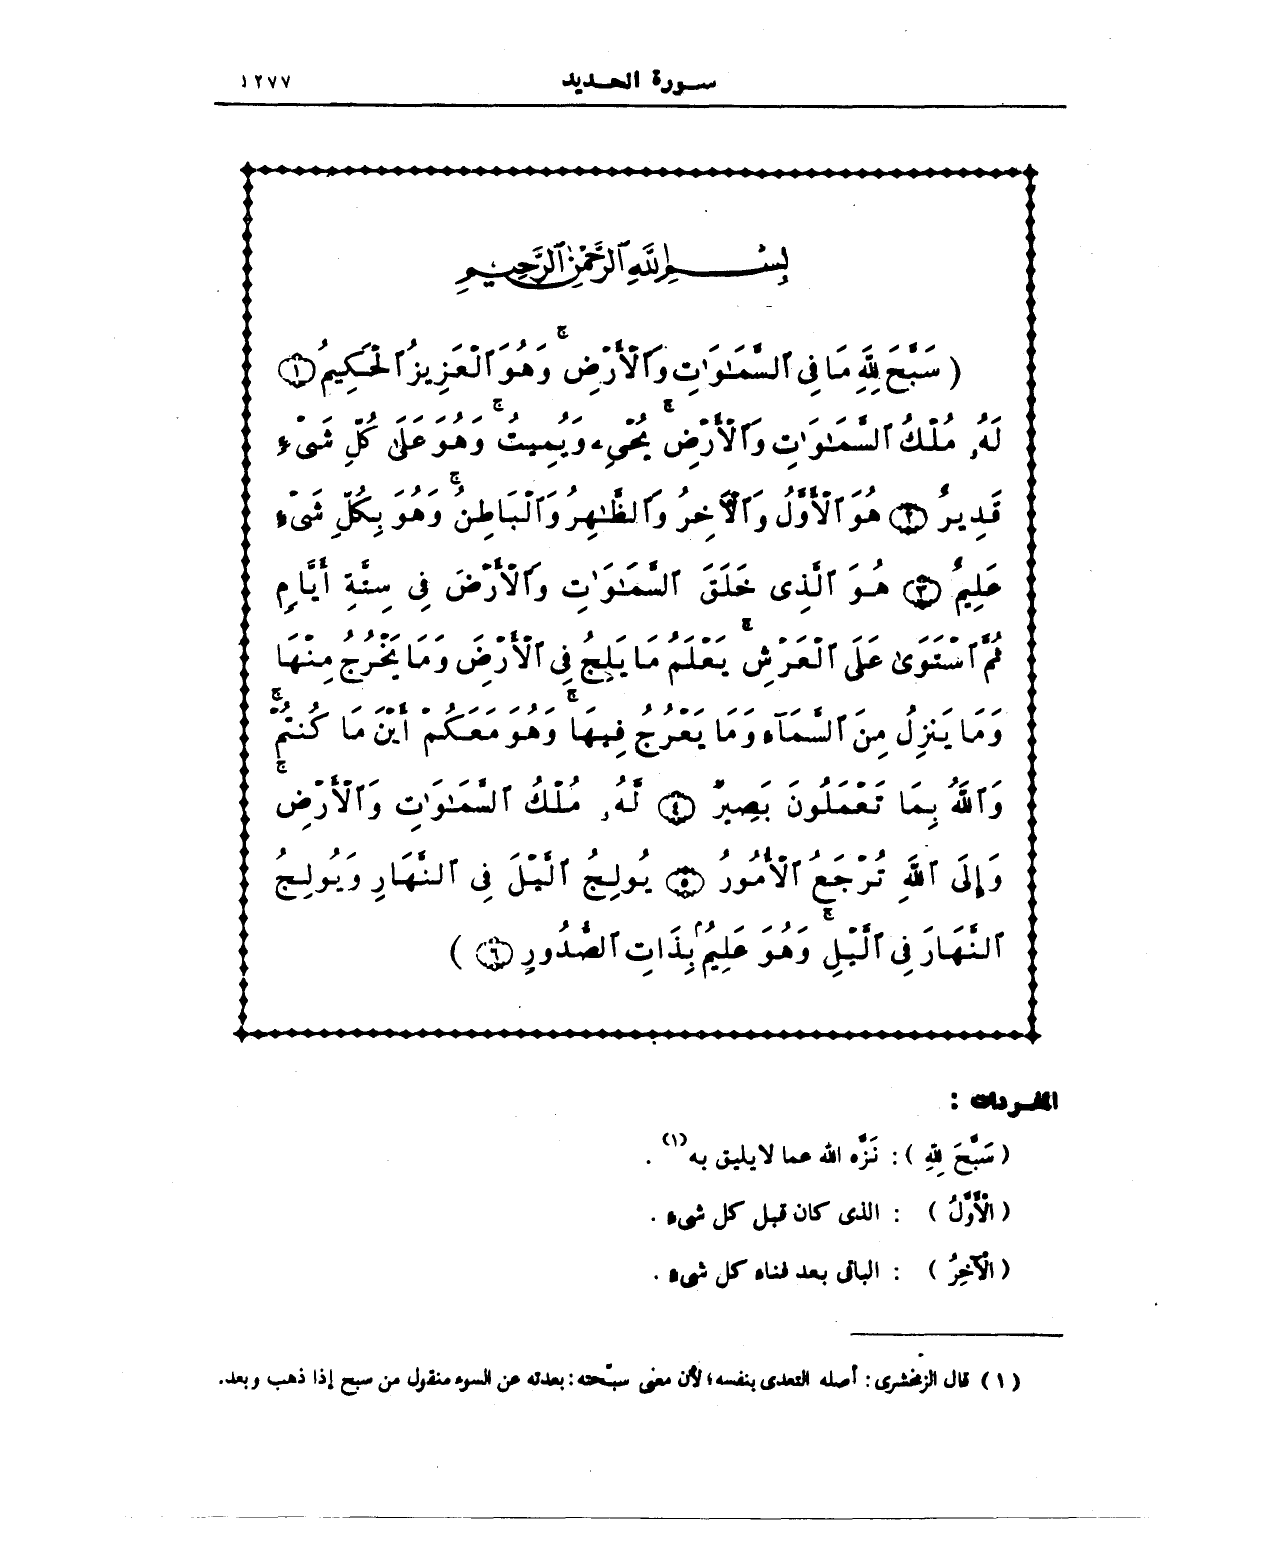 سورة الحديد ١٢٧٧
بِسْمِ ٱللَّهِ ٱلرَّحْمَٰنِ ٱلرَّحِيمِ
( سَبَّحَ لِلَّهِ مَا فِي ٱلسَّمَٰوَٰتِ وَٱلْأَرْضِ ۚ وَهُوَ ٱلْعَزِيزُ ٱلْحَكِيمُ ١
لَهُۥ مُلْكُ ٱلسَّمَٰوَٰتِ وَٱلْأَرْضِ ۚ يُحْيِۦ وَيُمِيتُ ۚ وَهُوَ عَلَىٰ كُلِّ شَىْءٍ
قَدِيرٌ ٢ هُوَ ٱلْأَوَّلُ وَٱلْآخِرُ وَٱلظَّٰهِرُ وَٱلْبَاطِنُ ۚ وَهُوَ بِكُلِّ شَىْءٍ
عَلِيمٌ ٣ هُوَ ٱلَّذِى خَلَقَ ٱلسَّمَٰوَٰتِ وَٱلْأَرْضَ فِى سِتَّةِ أَيَّامٍ
ثُمَّ ٱسْتَوَىٰ عَلَى ٱلْعَرْشِ ۚ يَعْلَمُ مَا يَلِجُ فِى ٱلْأَرْضِ وَمَا يَخْرُجُ مِنْهَا
وَمَا يَنزِلُ مِنَ ٱلسَّمَآءِ وَمَا يَعْرُجُ فِيهَا ۚ وَهُوَ مَعَكُمْ أَيْنَ مَا كُنتُمْ ۚ
وَٱللَّهُ بِمَا تَعْمَلُونَ بَصِيرٌ ٤ لَّهُۥ مُلْكُ ٱلسَّمَٰوَٰتِ وَٱلْأَرْضِ ۚ
وَإِلَى ٱللَّهِ تُرْجَعُ ٱلْأُمُورُ ٥ يُولِجُ ٱلَّيْلَ فِى ٱلنَّهَارِ وَيُولِجُ
ٱلنَّهَارَ فِى ٱلَّيْلِ ۚ وَهُوَ عَلِيمٌۢ بِذَاتِ ٱلصُّدُورِ ٦ )
المفردات :
( سَبَّحَ لِلَّهِ ) : نَزَّه الله عما لا يليق به(١) .
( الْأَوَّلُ ) : الذى كان قبل كل شىء .
( الْآخِرُ ) : الباقى بعد فناء كل شىء .
( ١ ) قال الزمخشرى : أصله التعدى بنفسه ؛ لأن معنى سبّحته : بعدته عن السوء منقول من سبح إذا ذهب وبعد .